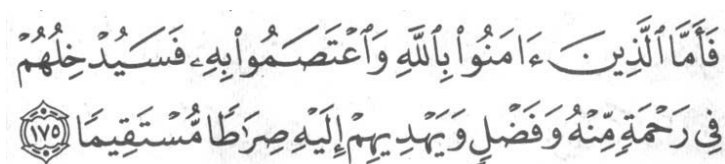 فَأَمَّا ٱلَّذِينَ ءَامَنُوا۟ بِٱللَّهِ وَٱعْتَصَمُوا۟ بِهِۦ فَسَيُدْخِلُهُمْ
فِى رَحْمَةٍ مِّنْهُ وَفَضْلٍ وَيَهْدِيهِمْ إِلَيْهِ صِرَٰطًا مُّسْتَقِيمًا ١٧٥